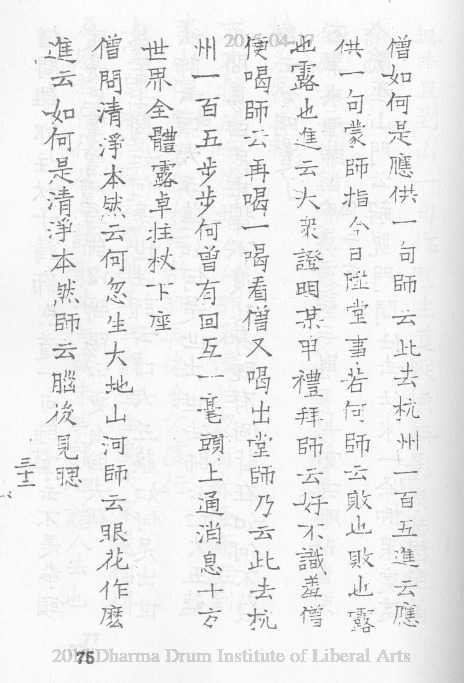 僧如何是應供一句師云此去杭州一百五進云應
供一句蒙師指今日陞堂事若何師云敗也敗也露
也露也進云大眾證明某甲禮拜師云好不識羞僧
便喝師云再喝一喝看僧又喝出堂師乃云此去杭
州一百五步步何曾有回互一毫頭上通消息十方
世界全體露卓拄杖下座
僧問清淨本然云何忽生大地山河師云眼花作麼
進云如何是清淨本然師云腦後見腮
三十二
75
2015-04-17
Dharma Drum Institute of Liberal Arts